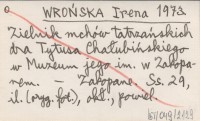 WROŃSKA Irena 1973
Zielnik mchów tatrzańskich
dra Tytusa Chałubińskiego
w Muzeum jego im. w Zakopa-
nem. — Zakopane. Ss. 29,
il. (oryg. fot), okł., powiel.